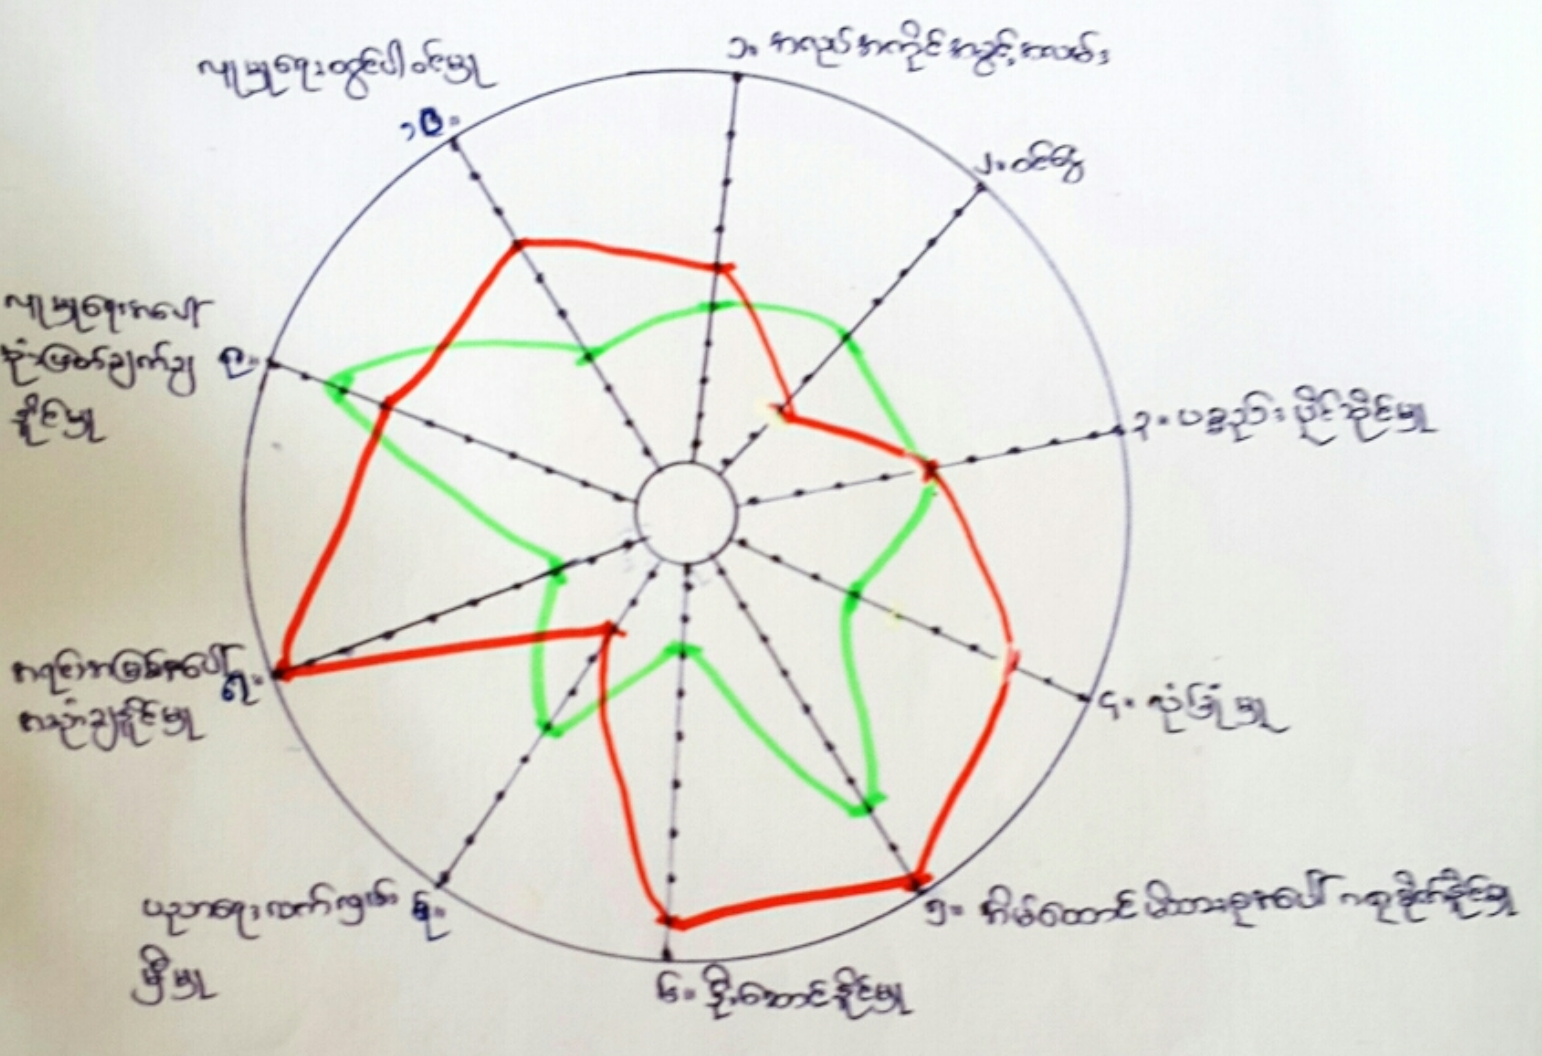 ၁။ အလုပ်အကိုင်အခွင့်အလမ်း
၂။ ဝင်ငွေ
၃။ ပစ္စည်းပိုင်ဆိုင်မှု
၄။ လုံခြုံမှု
၅။ အိမ်ထောင်မိသားစုအပေါ် ဂရုစိုက်နိုင်မှု
၆။ ဦးဆောင်နိုင်မှု
၇။ ပညာရေးလက်လှမ်း
မှီမှု
၈။ အရင်းအမြစ်အပေါ်
အသုံးချနိုင်မှု
၉။ လူမှုရေးအပေါ်
ဆုံးဖြတ်ချက်ချ
နိုင်မှု
၁၀။ လူမှုရေးတွင်ပါဝင်မှု